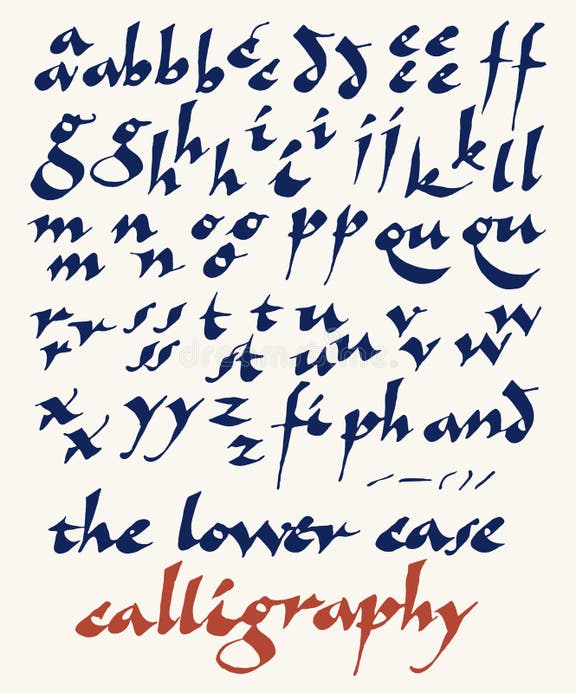 a a a a b b b c c d d e e e e f f
g g h h h i i i j j k k l l
m m n n o o o p p qu qu
r r r s s s s t t st u u u v v w w
x x y y z z fi ph and
the lower case
calligraphy
dreamstime.